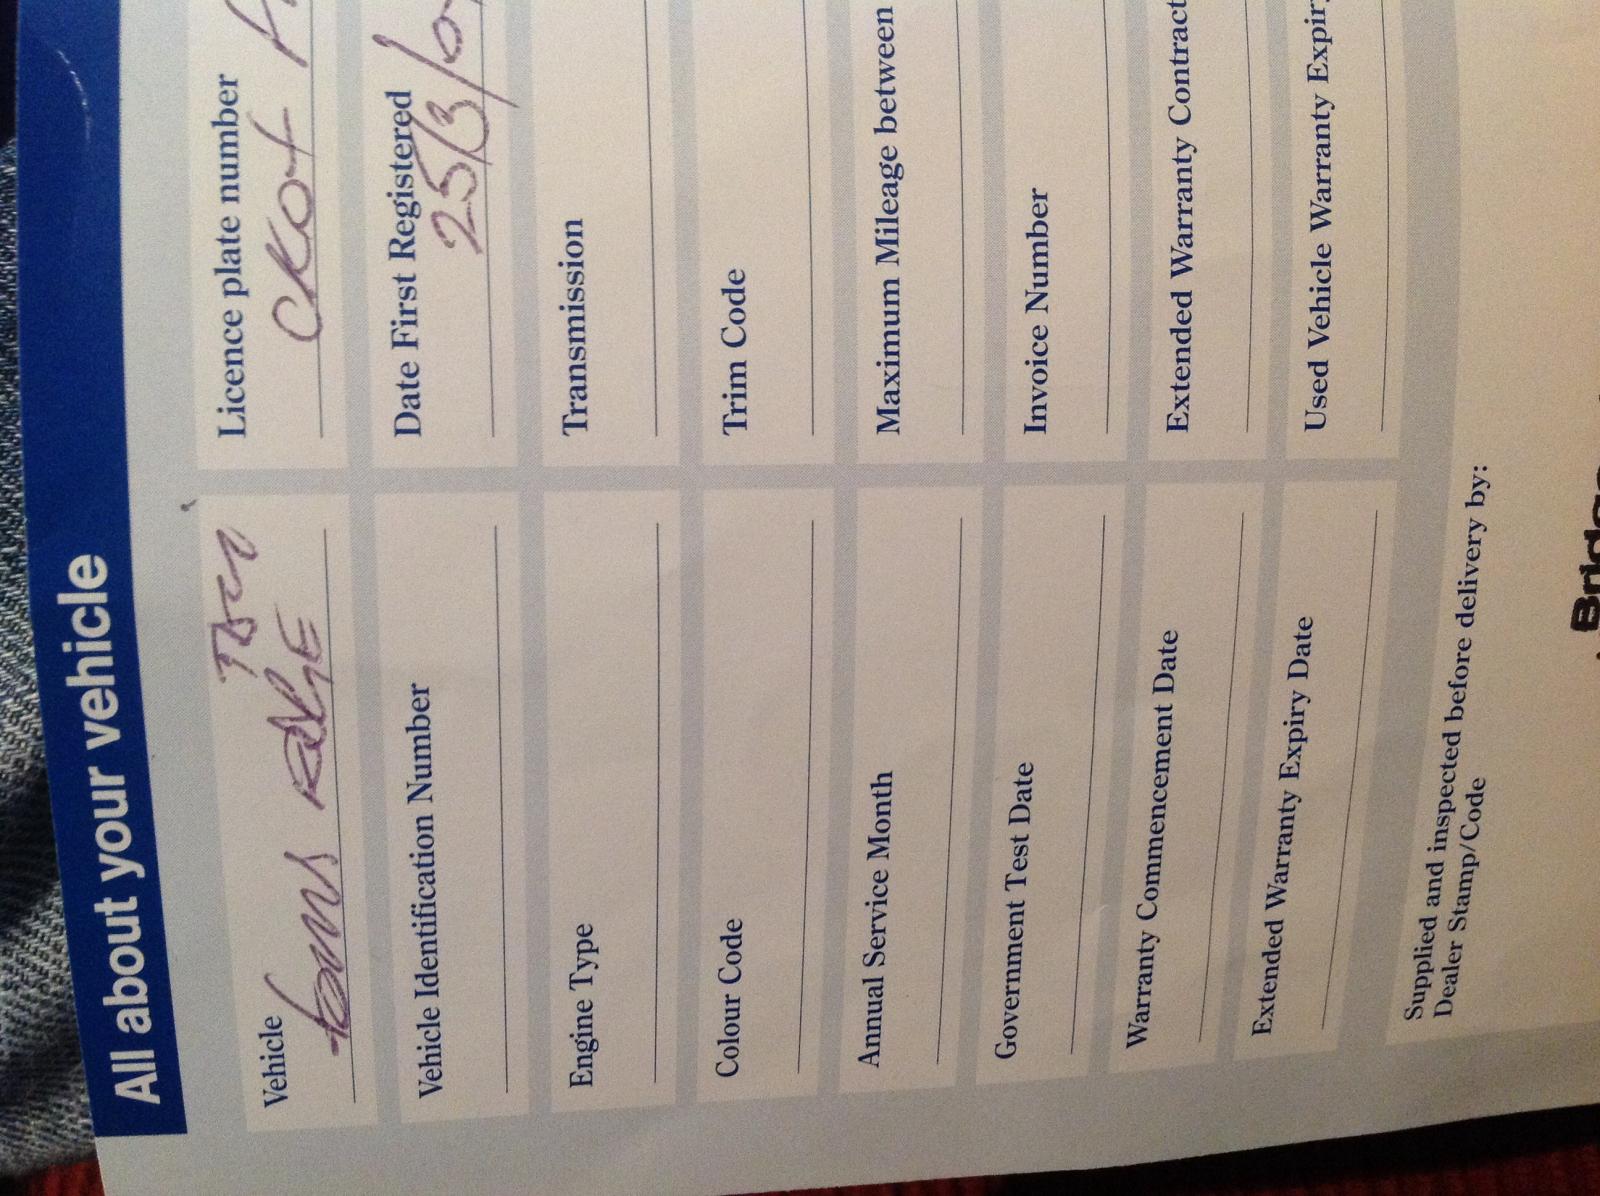 All about your vehicle
Vehicle
Licence plate number
CK07
Vehicle Identification Number
Date First Registered
25/3/0
Engine Type
Transmission
Colour Code
Trim Code
Annual Service Month
Maximum Mileage between
Government Test Date
Invoice Number
Warranty Commencement Date
Extended Warranty Contract
Extended Warranty Expiry Date
Used Vehicle Warranty Expiry
Supplied and inspected before delivery by:
Dealer Stamp/Code